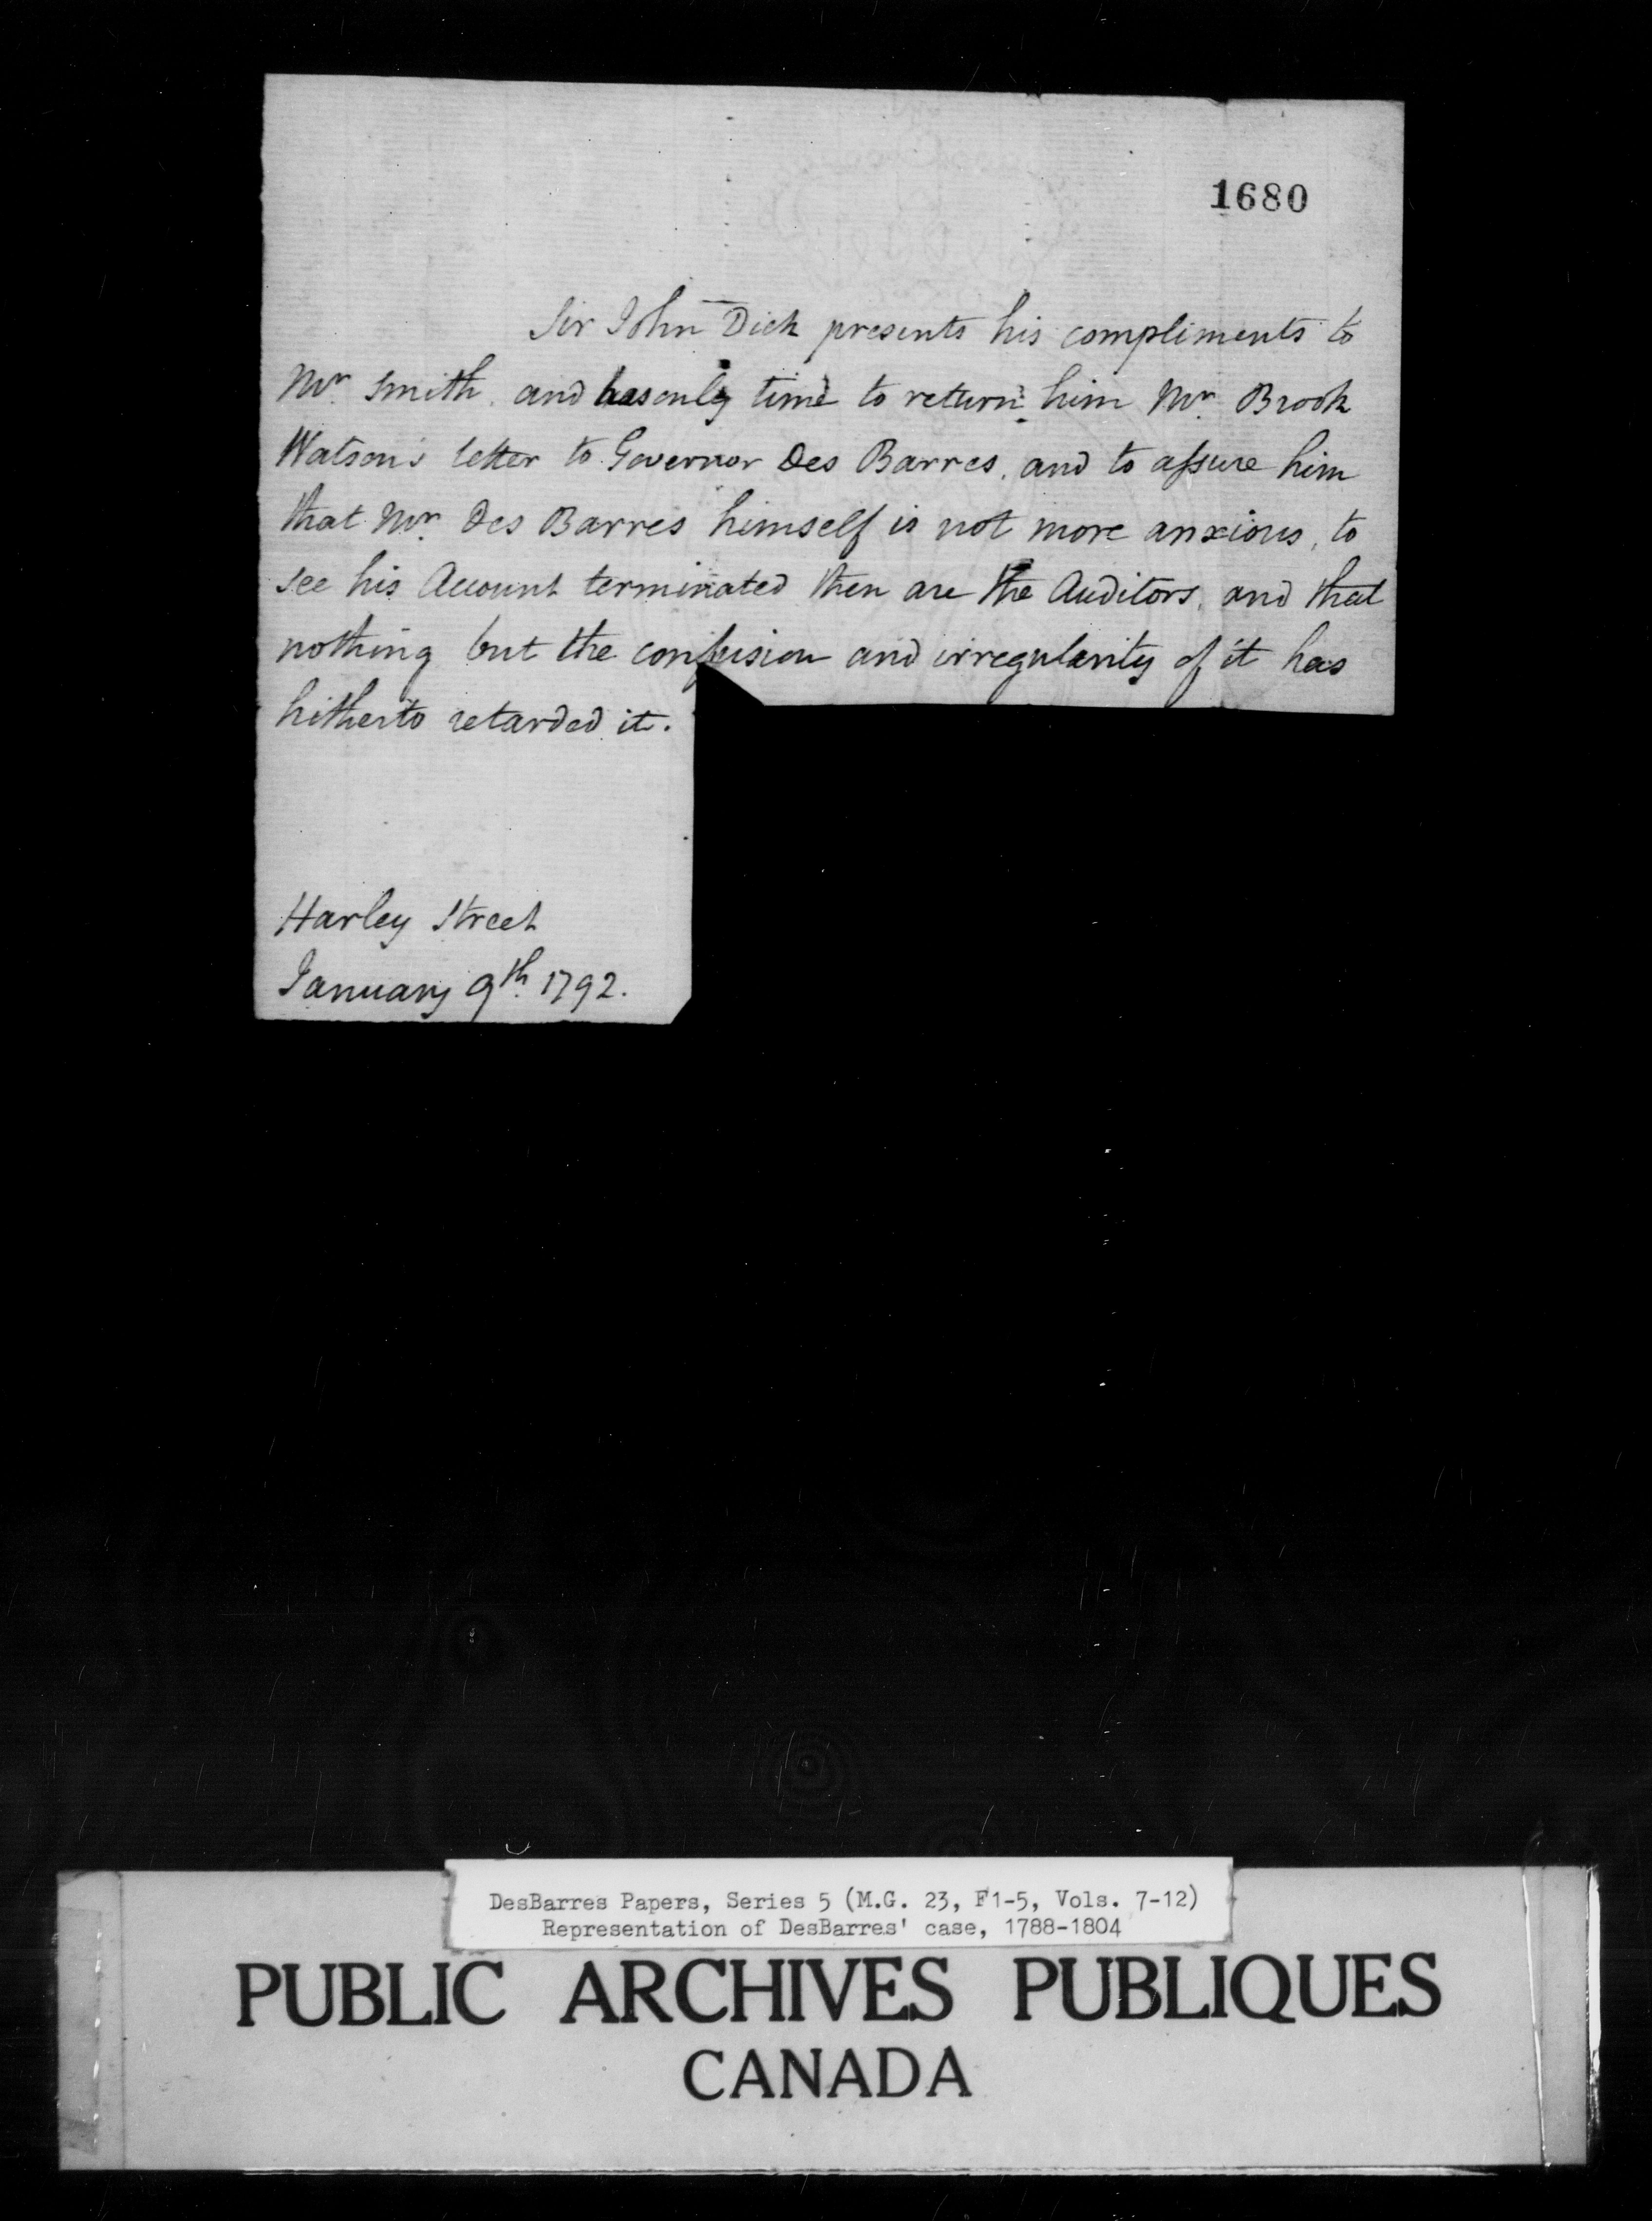 1680
Sir John Dick presents his compliments to
Mr. Smith, and has only time to return him Mr. Brook
Watson's letter to Governor Des Barres, and to assure him
that Mr. Des Barres himself is not more anxious, to
see his Account terminated then are the Auditors, and that
nothing but the confusion and irregularity of it has
hitherto retarded it.
Harley Street
January 9th. 1792.
DesBarres Papers, Series 5 (M.G. 23, F1-5, Vols. 7-12)
Representation of DesBarres' case, 1788-1804
PUBLIC ARCHIVES PUBLIQUES
CANADA